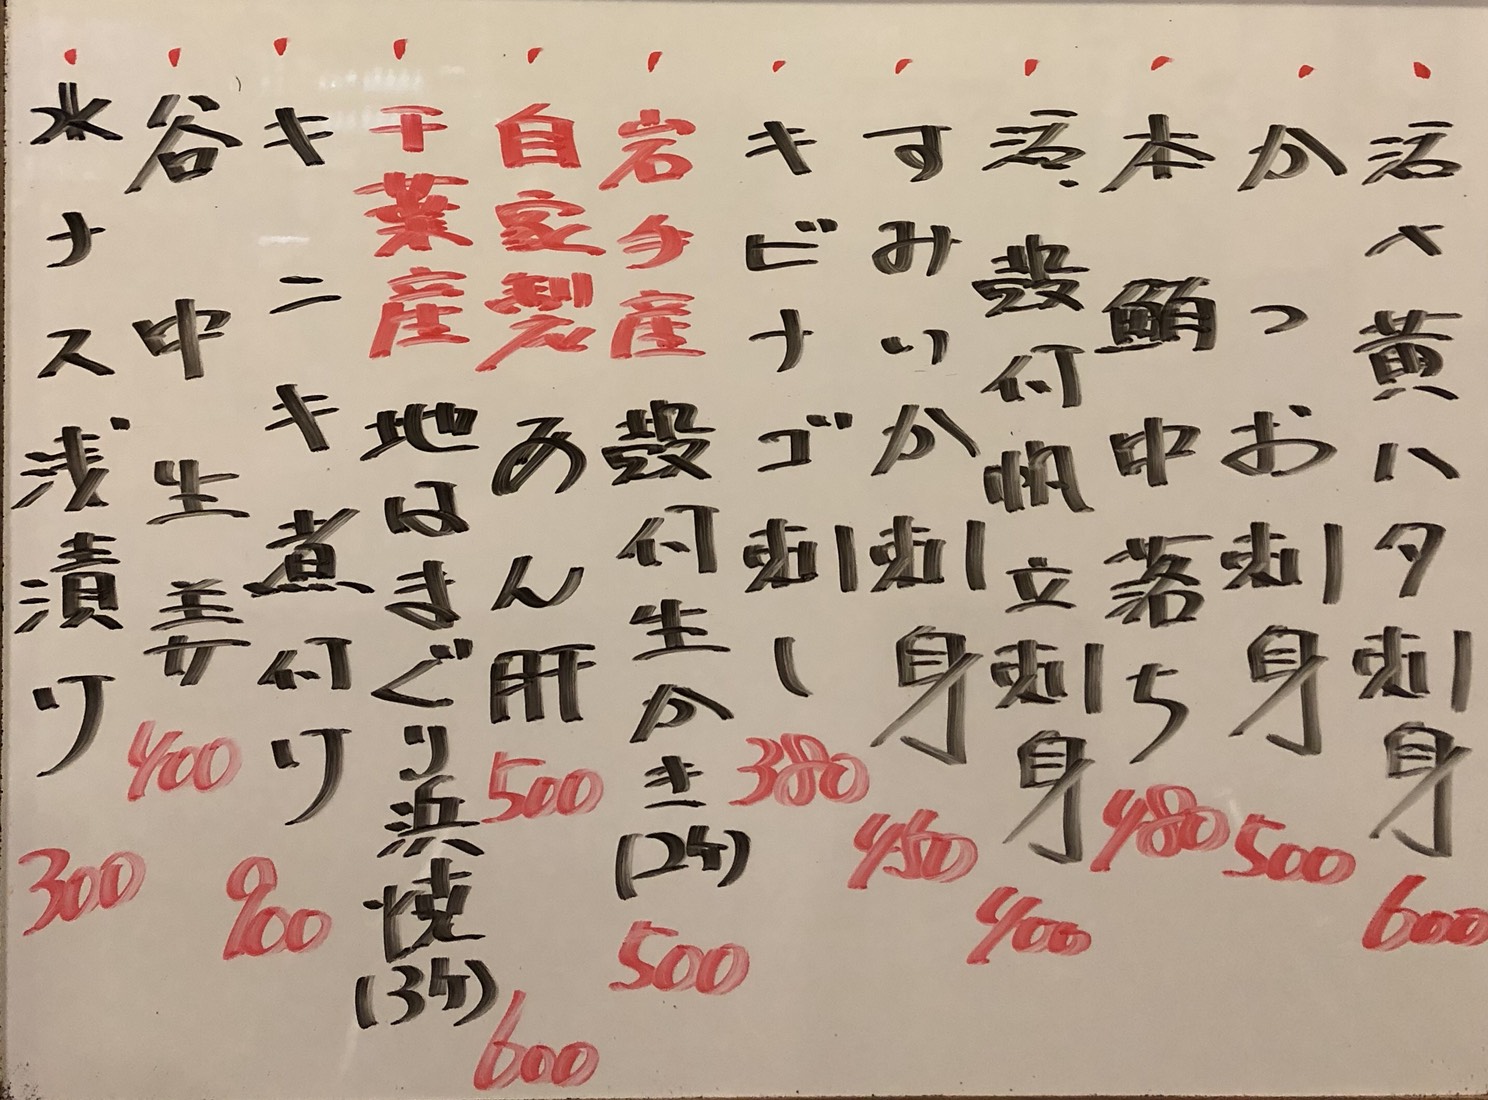 活〆黄ハタ刺身 600
かつお刺身 500
本鮪中落ち 480
活殻付帆立刺身 400
すみいか刺身 450
キビナゴ刺し 380
岩手産殻付生かき(2ケ) 500
自家製あん肝 500
千葉産地はまぐり浜焼(3ケ) 600
キンキ煮付け 900
谷中生姜 400
水ナス浅漬け 300